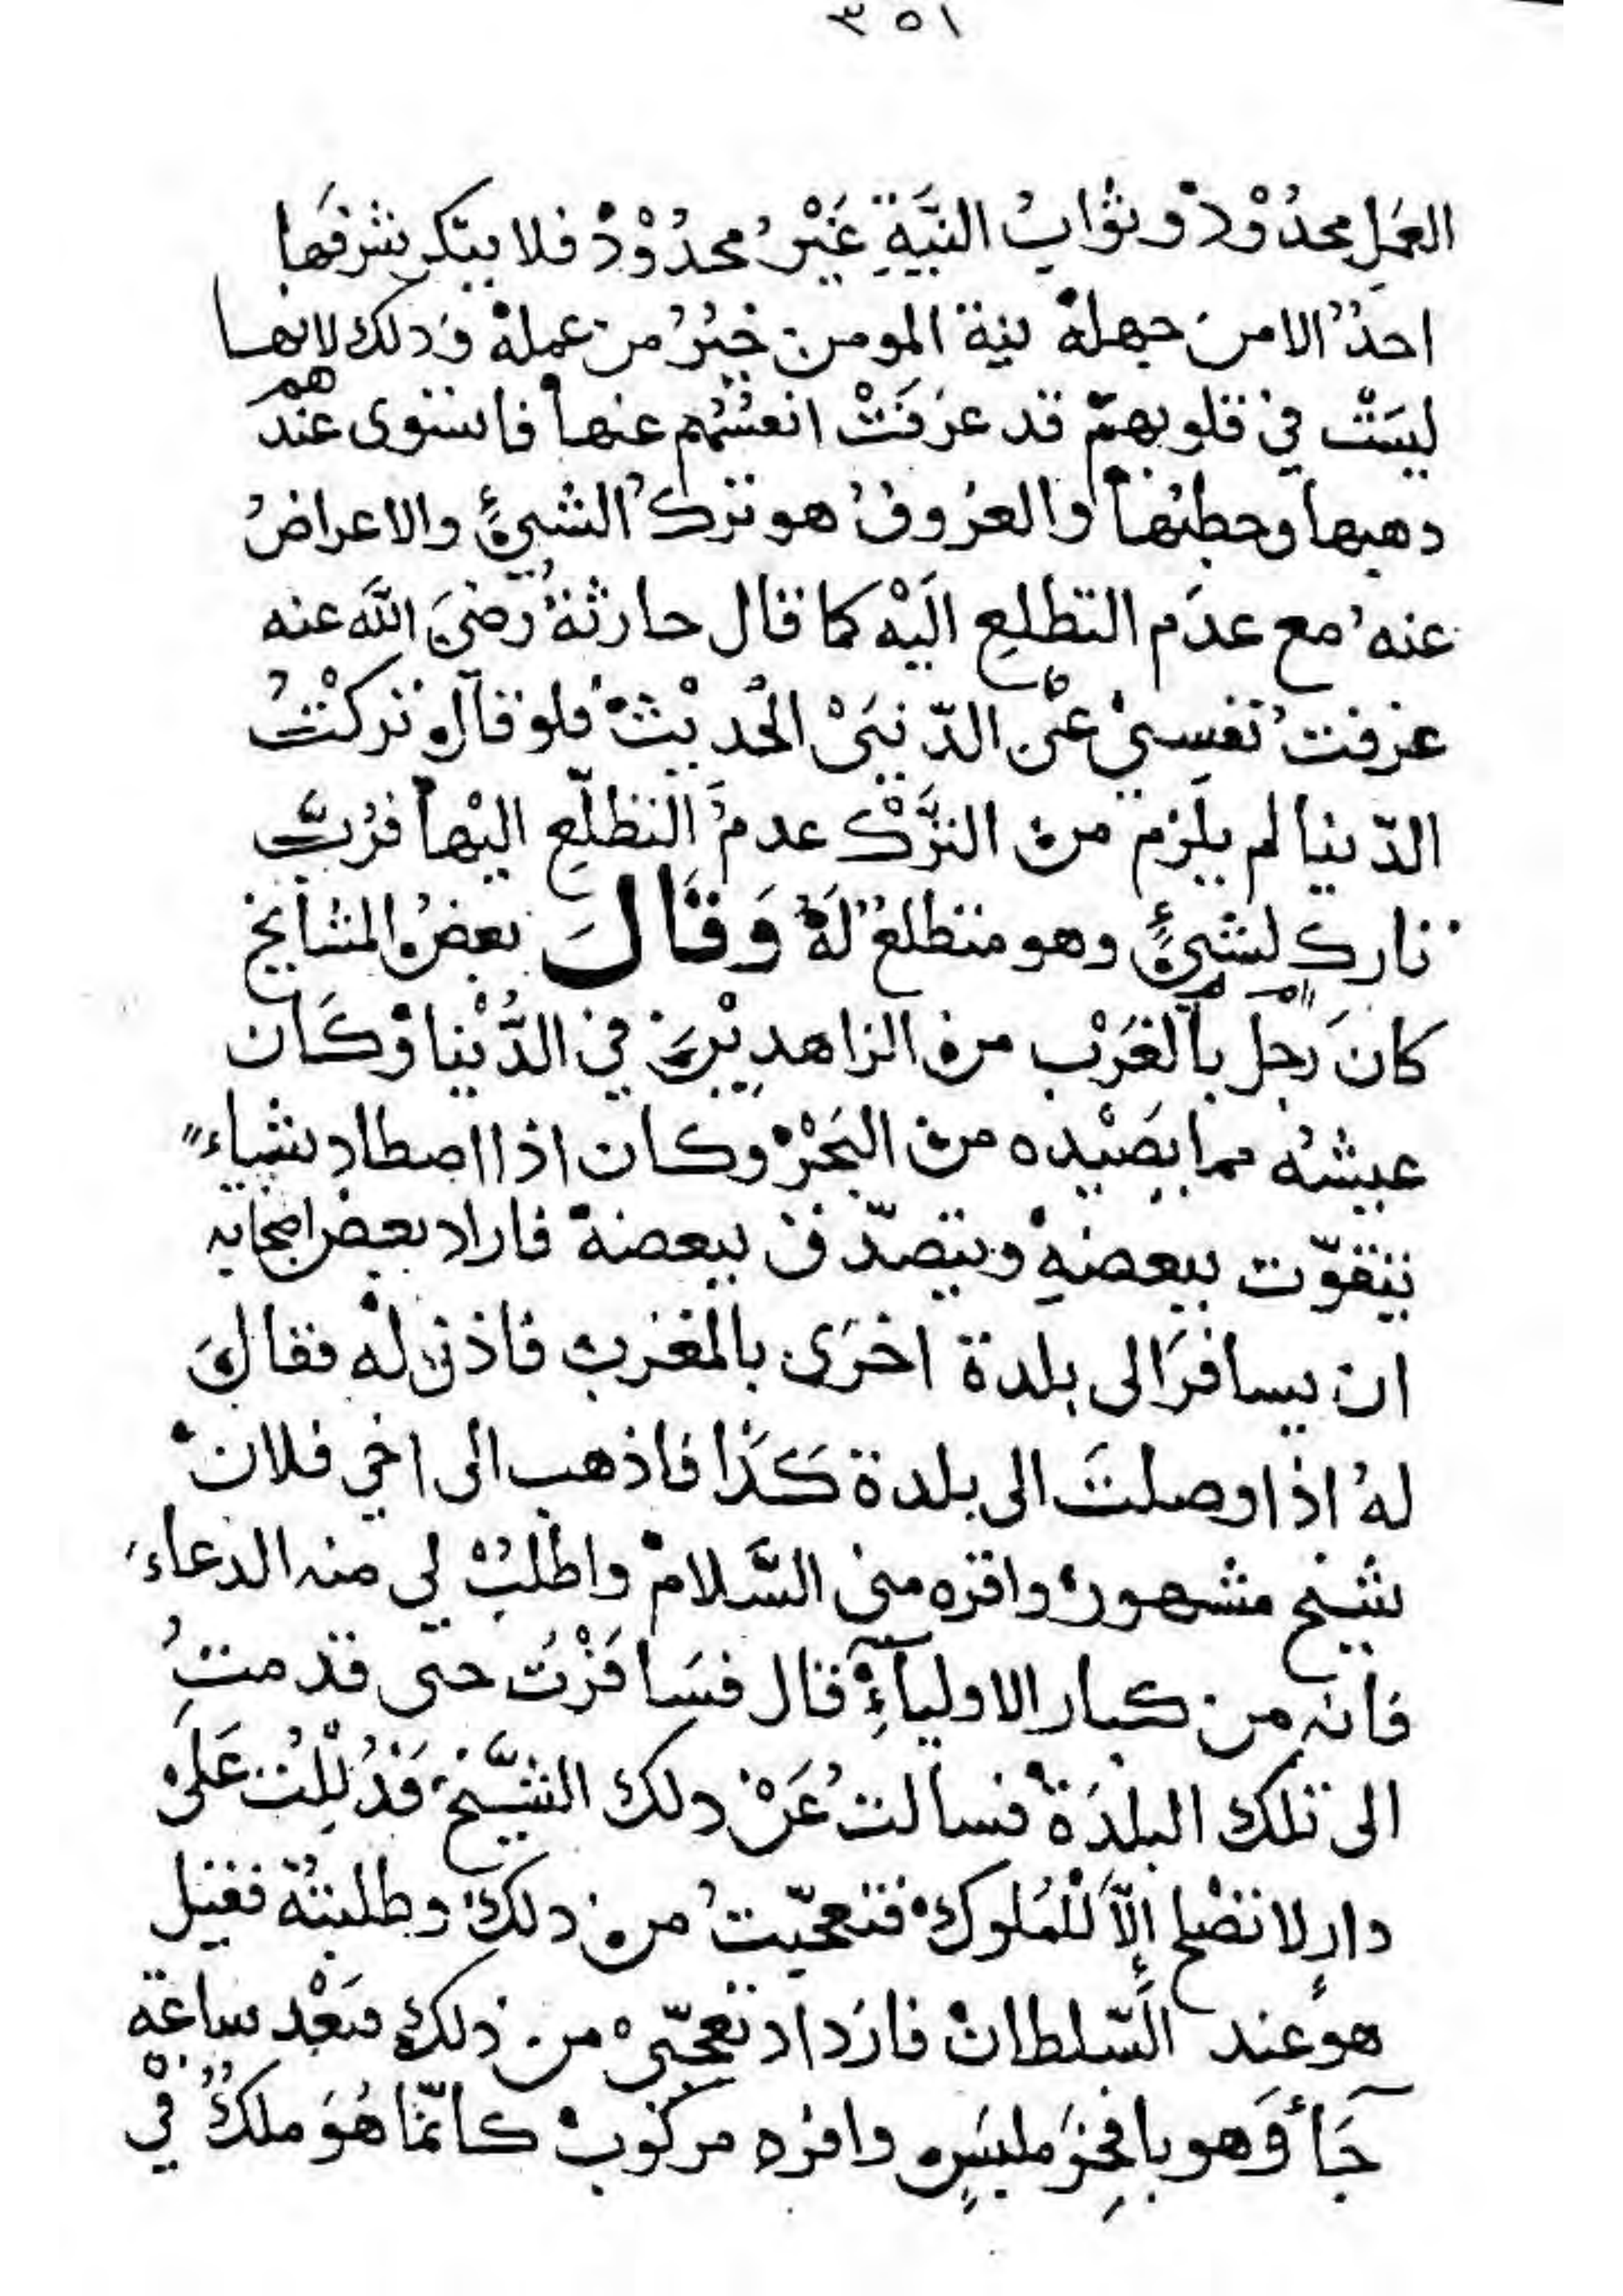 ٣٥١
العَمَلِ محدُوْدْ وثوابُ النيَّةِ غَيْرُ محدُوْدْ فلا ينكر شرفَها
احدٌ الا من جهلهْ نية المومن خيرٌ من عملهْ وذلك لانها
ليسَتْ في قلوبهمْ قد عزفَتْ انفسُهُم عنها فاستوى عندهم
ذهبها وحطبُها والعزُوفُ هو تركُ الشيءِ والاعراضُ
عنهُ مع عدَم التطلعِ اليَهْ كما قال حارثةُ رضيَ اللَّه عنه
عزفتْ نفسِيْ عنِ الدّنيَىْ الحُديْثْ فلو قال تركْتُ
الدّنيا لم يلزم من الترَّكْ عدمُ التطلّعِ اليْها فرُبَّ
تاركٍ لشيءٍ وهو متطلعٌ لَهْ وَقَالَ بعضُ المشايخ
كانَ رجل بالغَرْب من الزاهديْنَ في الدُّنْيا وَكَان
عيشهُ مما يصَيْده من البَحْرْ وكان اذا اصطاد شياءً
يتقوّت ببعضهِ ويتصدّق ببعضهْ فاراد بعض اصحابه
ان يسافرَ الى بلدة اخرَى بالمغرب فاذن لهْ فقالَ
لهُ اذا وصلتَ الى بلدة كَذَا فاذهب الى اخي فلان
شيخ مشهور واقره مني السَّلامْ واطلبْ لي منه الدعاءَ
فانه من كبار الاوليآءِ قال فسَافرْتُ حتى قدمتُ
الى تلك البلدَةْ فسالتُ عَنْ ذلك الشَّيخْ فَدُلِلْتُ عَلىْ
دارٍ لا تصْلح إلّا للْمُلوكْ فتعجّبتُ من ذلك وطلبتُهْ فقيل
هو عند السّلطانْ فازداد تعجّبيْ من ذلك فبَعْد ساعة
جَآءَ وَهو بافخِرَ ملبَسٍ وافره مركوبْ كانّما هُوَ ملكٌ فيْ